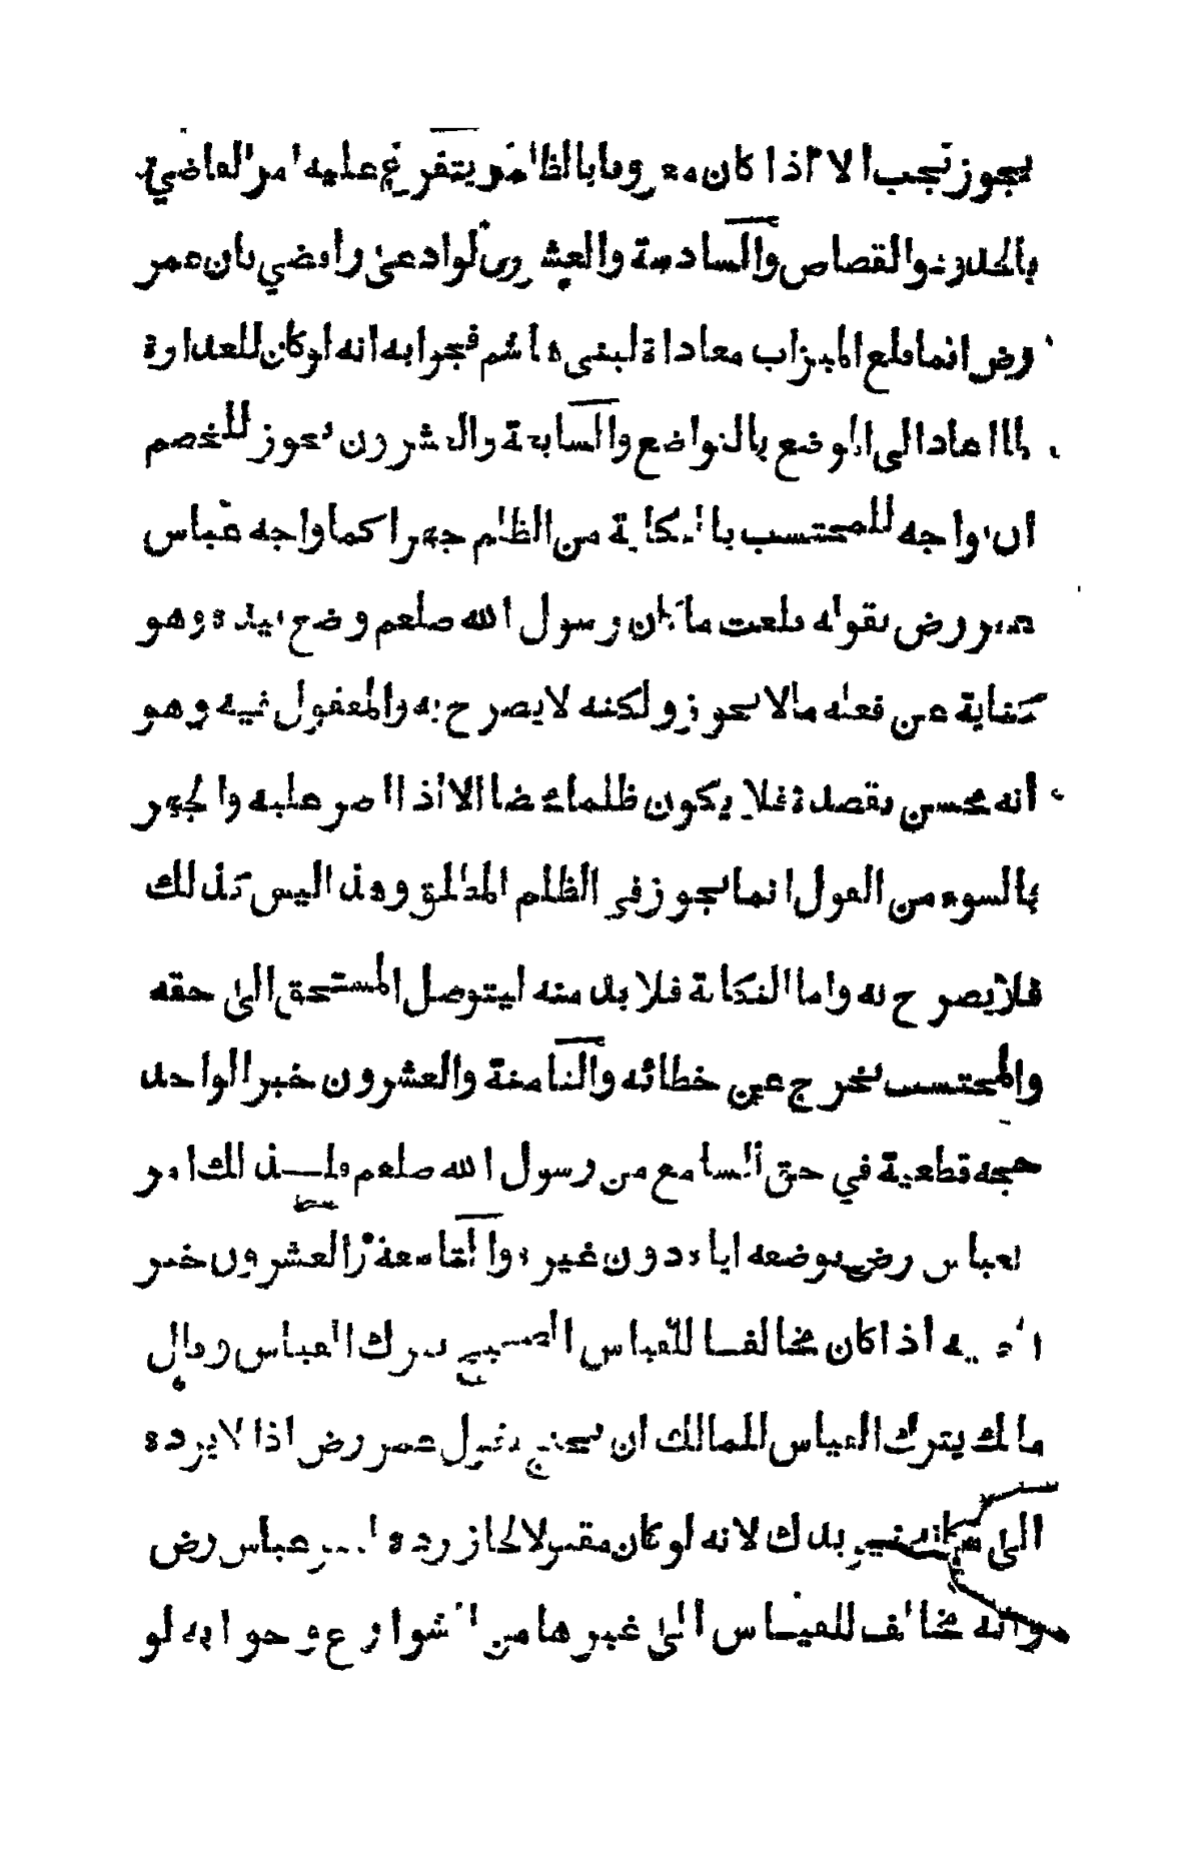 يجوز تجب الا اذا كان معروفا بالظلم يتفرغ عليه امر القاضي
بالحدود والقصاص والسادسة والعشرون لو ادعى رافضي بان عمر
رض انما قلع الميزاب معاداة لبني هاشم فجوابه انه لو كان للعداوة
لما اعاد الى الموضع بالتواضع والسابعة والعشرون يجوز للخصم
ان يواجه للمحتسب بالنكاية من الظلم جهرا كما واجه عباس
عمر رض بقوله قلعت ما كان رسول الله صلعم وضع بيده وهو
كناية عن فعله مالا يجوز ولكنه لا يصرح به والمعقول فيه وهو
انه محسن بقصده فلا يكون ظلما محضا الا اذا اصر عليه والجهر
بالسوء من القول انما يجوز في الظلم المطلق وهذا ليس كذلك
فلا يصرح به واما النكاية فلا بد منه ليتوصل المستحق الى حقه
والمحتسب يخرج عن خطائه والثامنة والعشرون خبر الواحد
حجة قطعية في حق السامع من رسول الله صلعم فلذلك امر
لعباس رض بوضعه اياه دون غيره والتاسعة والعشرون خبر
اذا كان مخالفا للقياس الصحيح يترك القياس وقال
مالك يترك القياس للمالك ان يحتج بقول عمر رض اذا لا يرده
الى مكانه غير يدك لانه لو كان مقبولا لجاز رده عباس رض
وانه مخالف للقياس الى غيرها من الشوارع وجوابه لو